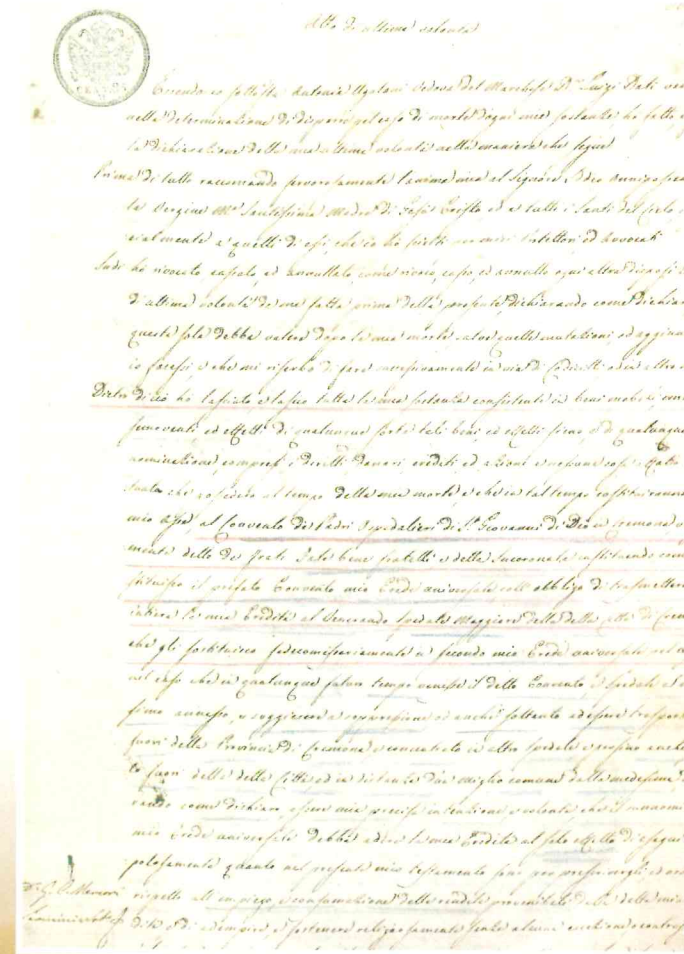 Atto di ultima volontà
Essendo io sottoscritta Antonia Ugolani Vedova del Marchese Dn Luigi Dati
nella determinazione di disporre pel caso di morte d'ogni mia sostanza ho fatto, e
la dichiarazione della mia ultima volontà nella maniera che segue
Prima di tutto raccomando fervorosamente l'anima mia al Signore Iddio Onnipo
la Vergine Ma Santissima Madre di Gesù Cristo ed a tutti i Santi del Cielo
cialmente a quelli di essi, che io ho scielti per miei Protettori, ed Avvocati
Indi ho rivocato cassato, ed annullato, come rivoco, casso, ed annullo ogni altra
di ultima volontà da me fatta prima della presente, dichiarando come dichia
questa sola debba valere dopo la mia morte salve quelle mutazioni ed aggiun
io facessi, e che mi riserbo di fare successivamente in via di Codicilli od in altro
Dietro di ciò ho lasciato, e lascio tutta la mia sostanza consistente in beni mobili,
semoventi, ed effetti di qualunque sorta tali beni ed effetti sieno, e di qualunque
nominazione, compresi i diritti danari crediti ed azioni e nessuna cosa
tuata che possederò al tempo della mia morte, e che in tal tempo costituiranno
mio Asse, al Convento dei Padri Ospedalieri di S. Giovanni di Dio in Cremona,
mente detto dei Frati Fate bene fratelli e della Incoronata instituendo com
stituisco il prefato Convento mio Erede universale coll'obbligo di trasmettere
intiera la mia Eredità al Venerando Spedale Maggiore della detta città di Crem
che gli sostituisco fedecomissariamente in secondo mio Erede universale nel
nel caso che in qualunque futuro tempo venisse il detto Convento e Spedale
simo annesso, a soggiacere a soppressione od anche soltanto ad essere traspor
fuori della Provincia di Cremona e concentrato in altro Spedale e
to fuori della detta Città ed in distanza d'un miglio comune dalla medesima
rando come dichiaro, essere mia precisa intenzione e volontà che il
mio Erede universale debba adire la mia Eredità al solo effetto di esegui
polosamente quanto nel presente mio testamento sono per prescrivergli
rispetto all'impiego, e consumazione delle rendite provenibili dalla detta mia
dità e di adempiere, e sostenere religiosamente senza alcuna eccezione